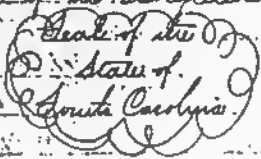 Seale of the
State of
South Carolina.